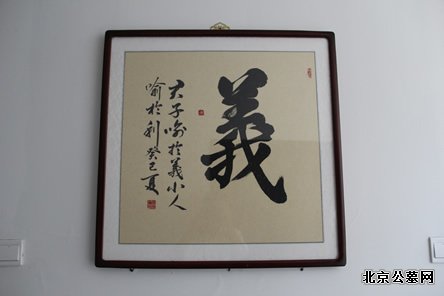 義
君子喻於義小人
喻於利癸巳夏
北京公墓网